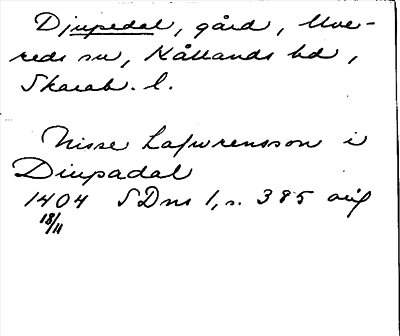 Djupedal, gård, Otve-
reds sn, Kållands hd,
Skarab. l.
Nisse Lafwrensson i
Diupadal
1404 SDns 1, s. 385 orig
18/11